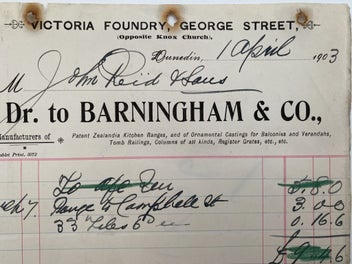 VICTORIA FOUNDRY, GEORGE STREET,
(Opposite Knox Church),
Dunedin, 1 April 1903
M John Reid & Sons
Dr. to BARNINGHAM & CO.,
Manufacturers of Patent Zealandia Kitchen Ranges, and of Ornamental Castings for Balconies and Verandahs,
Tomb Railings, Columns of all kinds, Register Grates, etc., etc.
Print, 3072
To
7. Range to Campbell St 3. 0 0
33 Tiles 6 0. 16. 6